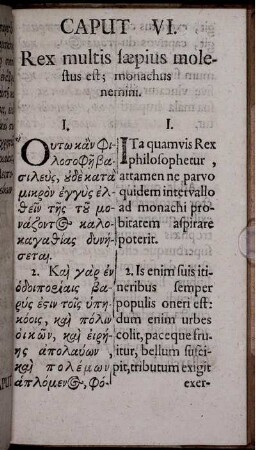 CAPUT VI.
Rex multis sæpius mole-
stus est; monachus
nemini.
I.
Οὕτω κἂν φι-
λοσοφῇ βα-
σιλεὺς, οὐδὲ κατὰ
μικρὸν ἐγγὺς ἐλ-
θεῖν τῆς τοῦ μο-
νάζοντος καλο-
καγαθίας δυνή-
σεται.
2. Καὶ γὰρ ἐν
ὁδοιπορίαις βα-
ρὺς ἐσιν τοῖς ὑπη-
κόοις, καὶ πόλιν
οἰκῶν, καὶ εἰρή-
νης ἀπολαύων,
καὶ πολέμων
ἁπλόμενος, φό-
I.
ITa quamvis Rex
philosophetur,
attamen ne parvo
quidem intervallo
ad monachi pro-
bitatem aspirare
poterit.
2. Is enim suis iti-
neribus semper
populis oneri est:
dum enim urbes
colit, paceque fru-
itur, bellum susci-
pit, tributum exigit
exer-
CAPUT